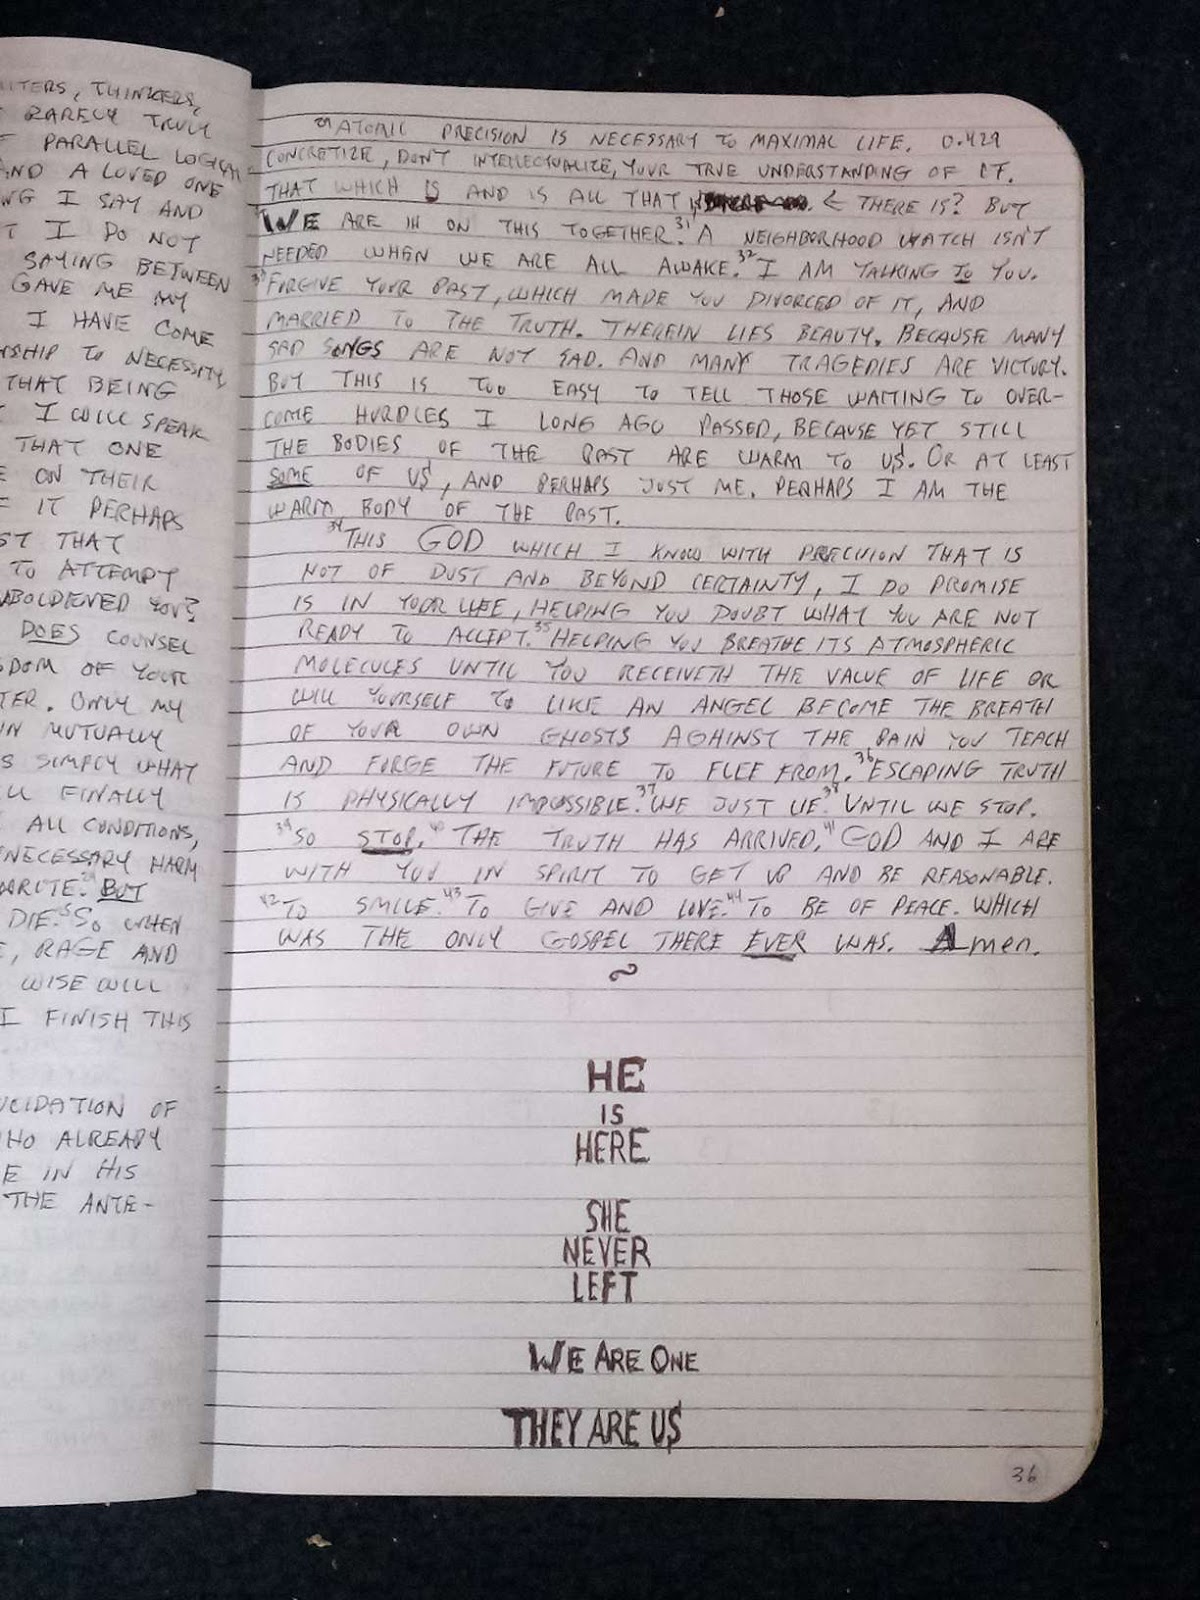 THINKERS,
RARELY TRULY
PARALLEL LOGICAL
AND A LOVED ONE
I SAY AND
I DO NOT
SAYING BETWEEN
GAVE ME MY
I HAVE COME
TO NECESSITY
THAT BEING
I WILL SPEAR
THAT ONE
ON THEIR
IT PERHAPS
THAT
TO ATTEMPT
YOU?
DOES COUNSEL
OF YOUR
ONLY MY
MUTUALLY
SIMPLY WHAT
FINALLY
ALL CONDITIONS,
HARM
BUT
DIE. SO WHEN
, RAGE AND
WISE WILL
I FINISH THIS
OF
ALREADY
IN HIS
THE ANTE-
29 ATOMIC PRECISION IS NECESSARY TO MAXIMAL LIFE. 0.429
CONCRETIZE, DON'T INTELLECTUALIZE, YOUR TRUE UNDERSTANDING OF IT.
THAT WHICH IS AND IS ALL THAT ← THERE IS? BUT
WE ARE IN ON THIS TOGETHER. 31 A NEIGHBORHOOD WATCH ISN'T
NEEDED WHEN WE ARE ALL AWAKE. 32 I AM TALKING TO YOU.
33 FORGIVE YOUR PAST, WHICH MADE YOU DIVORCED OF IT, AND
MARRIED TO THE TRUTH. THEREIN LIES BEAUTY. BECAUSE MANY
SAD SONGS ARE NOT SAD. AND MANY TRAGEDIES ARE VICTORY.
BUT THIS IS TOO EASY TO TELL THOSE WAITING TO OVER-
COME HURDLES I LONG AGO PASSED, BECAUSE YET STILL
THE BODIES OF THE PAST ARE WARM TO U$. OR AT LEAST
SOME OF U$, AND PERHAPS JUST ME. PERHAPS I AM THE
WARM BODY OF THE PAST.
34 THIS GOD WHICH I KNOW WITH PRECISION THAT IS
NOT OF DUST AND BEYOND CERTAINTY, I DO PROMISE
IS IN YOUR LIFE, HELPING YOU DOUBT WHAT YOU ARE NOT
READY TO ACCEPT. 35 HELPING YOU BREATHE ITS ATMOSPHERIC
MOLECULES UNTIL YOU RECEIVETH THE VALUE OF LIFE OR
WILL YOURSELF TO LIKE AN ANGEL BECOME THE BREATH
OF YOUR OWN GHOSTS AGAINST THE PAIN YOU TEACH
AND FORGE THE FUTURE TO FLEE FROM. 36 ESCAPING TRUTH
IS PHYSICALLY IMPOSSIBLE. 37 WE JUST LIE. 38 UNTIL WE STOP.
39 SO STOP. 40 THE TRUTH HAS ARRIVED. 41 GOD AND I ARE
WITH YOU IN SPIRIT TO GET UP AND BE REASONABLE.
42 TO SMILE. 43 TO GIVE AND LOVE. 44 TO BE OF PEACE. WHICH
WAS THE ONLY GOSPEL THERE EVER WAS. Amen.
~
HE
IS
HERE
SHE
NEVER
LEFT
WE ARE ONE
THEY ARE U$
36